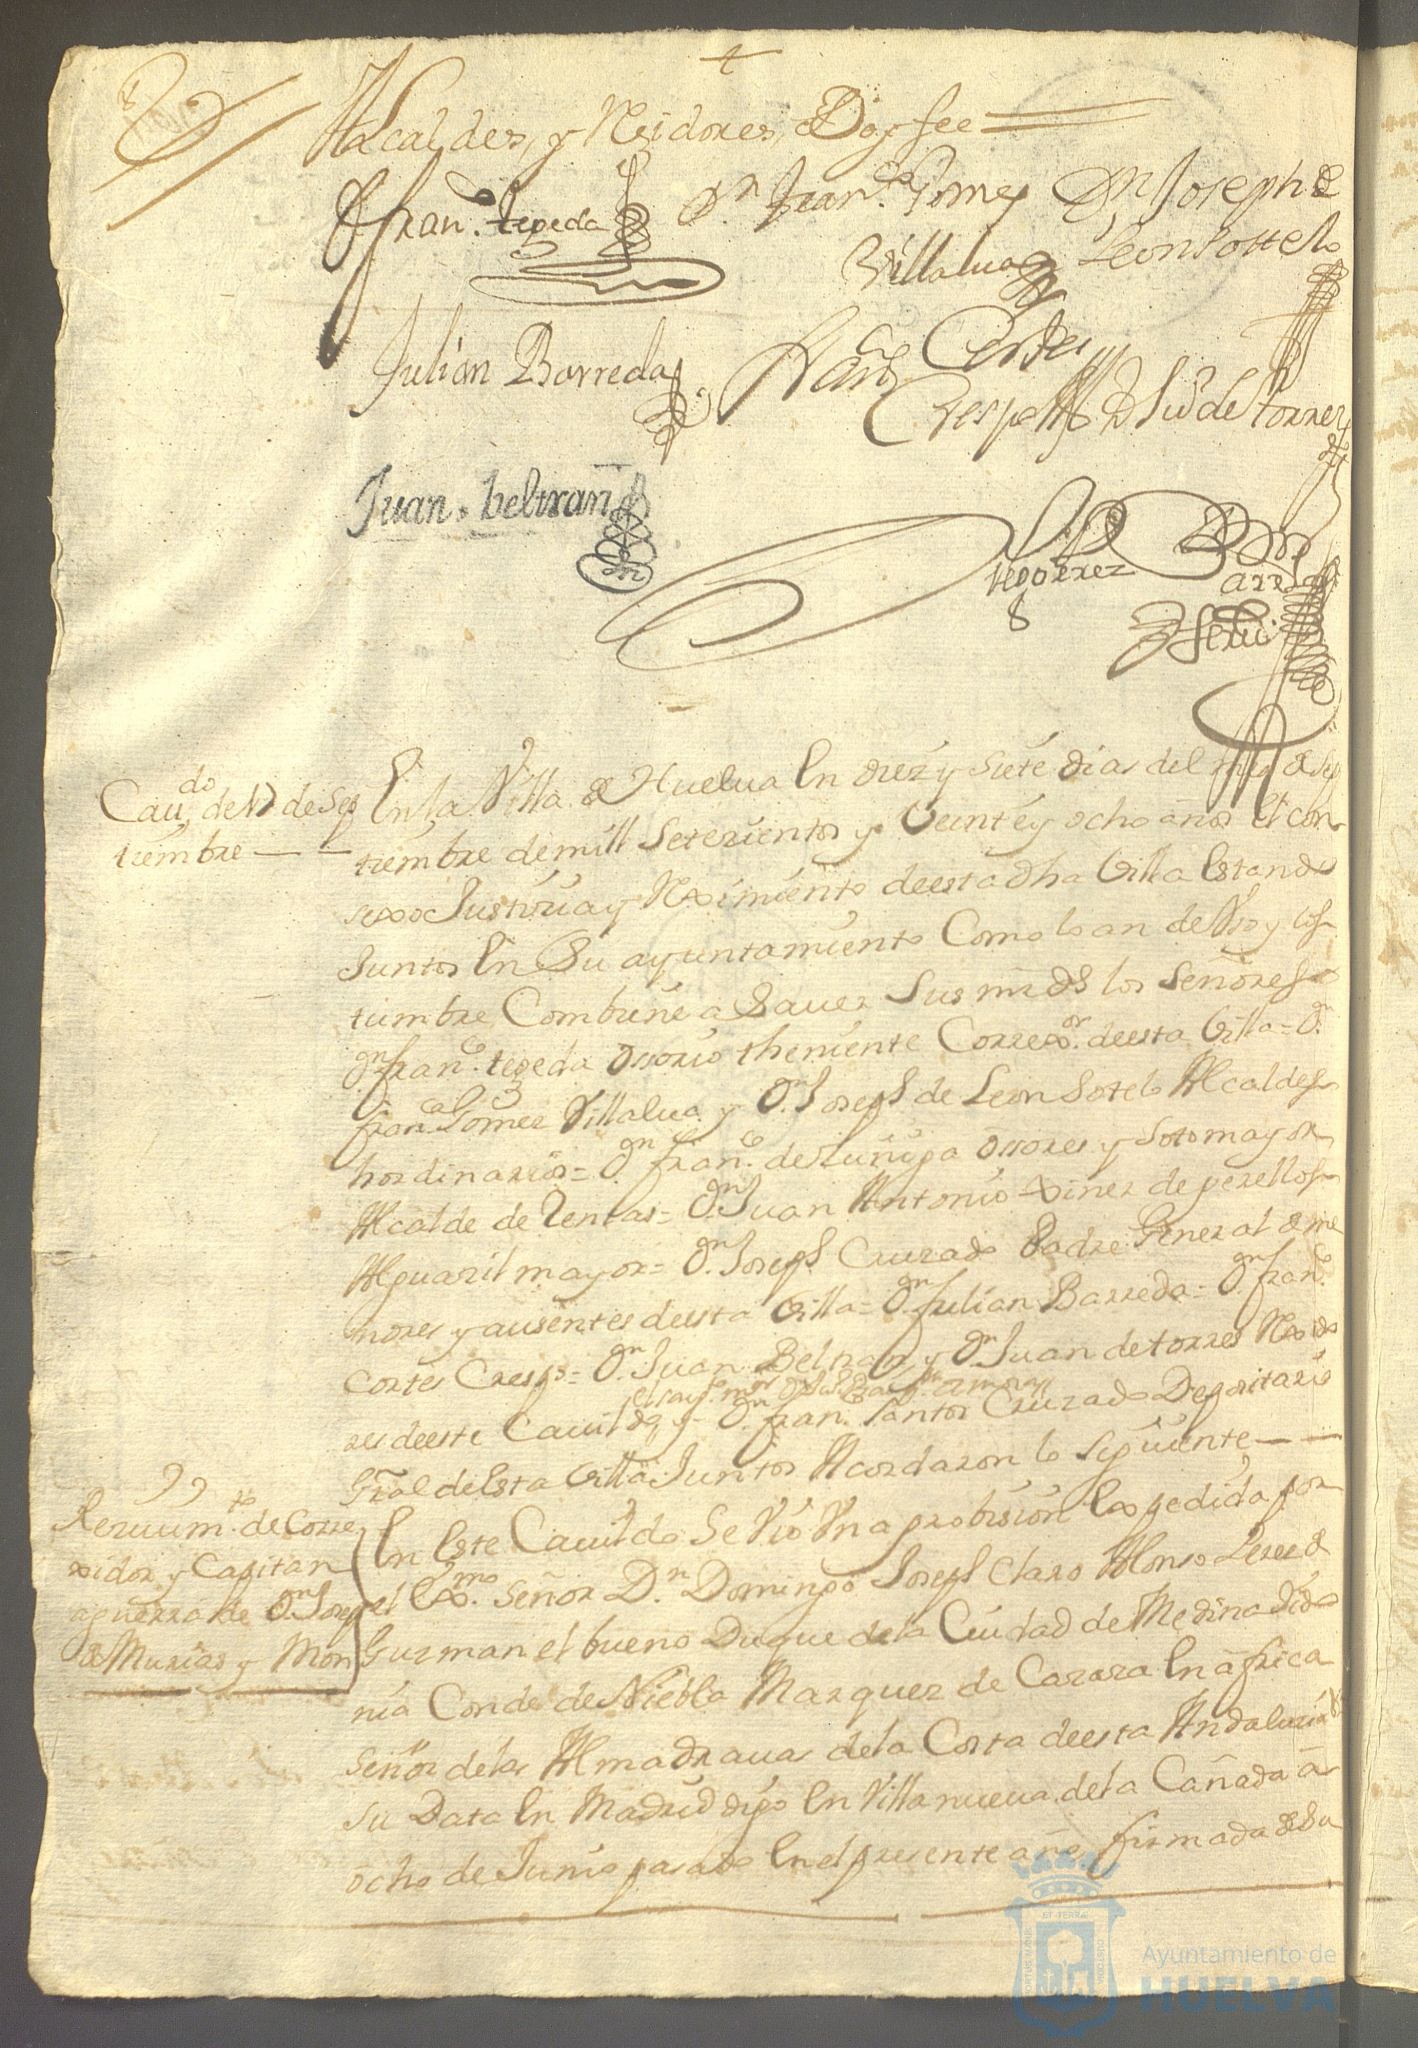 Alcaldes, y Rexidores, Doy fee
Fran.co tepeda
Dn Fran.co Gomez
Villalua
Dn Joseph de
Leon Sottelo
Julian Barreda
Fran.co Cortes
Crespo
Dn Ju.o de torres
Juan beltran
Cau.do de 17 de Sep
tiembre
En la Villa de Huelua En diez y siete dias del mes de Sep
tiembre de mill Setezientos y Veinte y ocho años el con
sexo Justizia y Reximiento de esta dha Villa Estando
Juntos En Su ayuntamiento Como lo an de Vso y cos
tumbre Combiene a Sauer Sus mrds los Señores
Dn fran.co tepeda Ossorio theniente Correx.or de esta Villa = Dn
fran.co Gomez Villalua y Dn Joseph de Leon Sotelo Alcaldes
hordinarios = Dn fran.co de Zuñiga Ossores y Sotomayor
Alcalde de Rentas = Dn Juan Antonio xinez de perellos
Alguazil mayor = Dn Joseph Cruzado Padre General de me
nores y ausentes de esta Villa = Dn Julian Barreda = Dn fran.co
Cortes Crespo = Dn Juan Beltran y Dn Juan de torres Rexido
res de este Cauildo y Dn fran.co Santos Cruzado Depositario
Gral de Esta Villa Juntos Acordaron lo Siguiente
Reziuim.to de Corre
xidor y Capitan
a guerra de Dn Josep
de Murias y Mon
En Este Cauildo Se Vio Vna probision Expedida por
el Ex.mo Señor Dn Domingo Joseph Claro Alonso Perez de
Guzman el bueno Duque de la Ciudad de Medina Sido
nia Conde de Niebla Marquez de Cazaza En africa
Señor de las Almadrauas de la Costa de esta Andaluzia
su Data En Madrid digo En Villanueua de la Cañada a
ocho de Junio pasado En el presente año firmada de Su
Ayuntamiento de
HUELVA